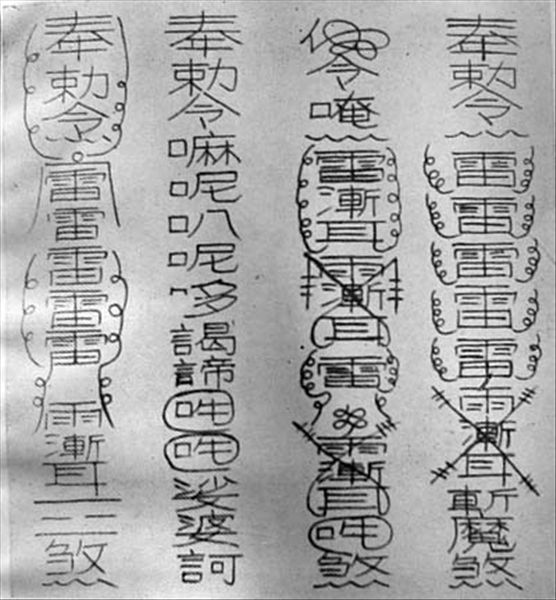 奉勅令雷雷雷雷雷雨漸耳斬魔煞
令唵雷漸耳雨漸耳雷雨漸耳吨煞
奉勅令嘛呢叭呢哆謁諦吨吨娑婆訶
奉勅令雷雷雷雷雷雨漸耳煞